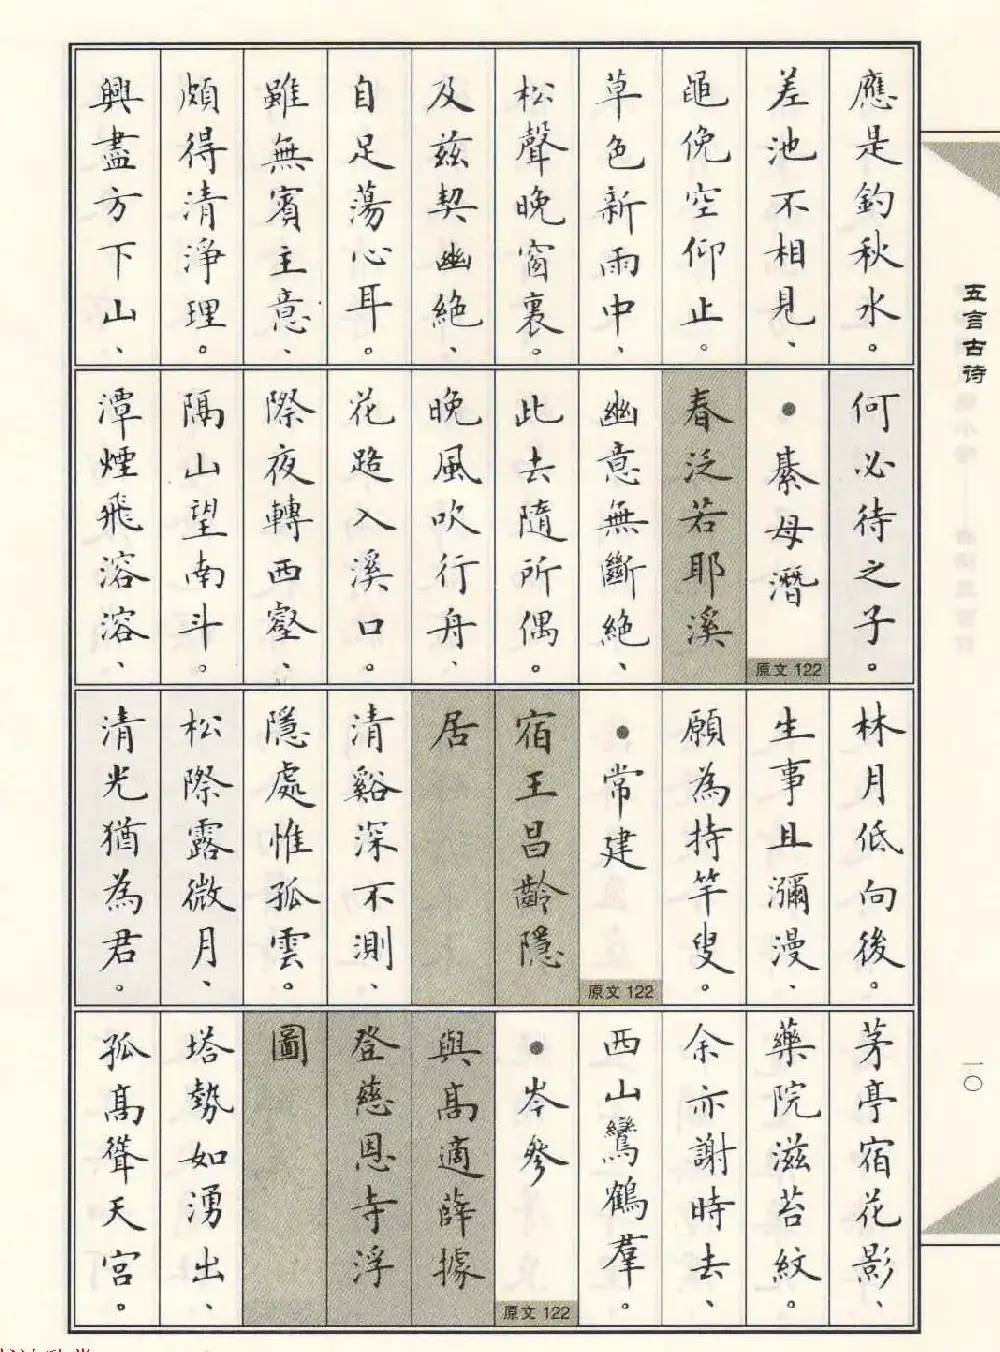 應是釣秋水。
差池不相見、
黽俛空仰止。
草色新雨中、
松聲晚窗裏。
及茲契幽絶、
自足蕩心耳。
雖無賓主意、
頗得清淨理。
興盡方下山、
何必待之子。
●綦母潛
原文122
春泛若耶溪
幽意無斷絶、
此去隨所偶。
晚風吹行舟、
花路入溪口。
際夜轉西壑、
隔山望南斗。
潭煙飛溶溶、
林月低向後。
生事且瀰漫、
願為持竿叟。
●常建
原文122
宿王昌齡隱
居
清谿深不測、
隱處惟孤雲。
松際露微月、
清光猶為君。
茅亭宿花影、
藥院滋苔紋。
余亦謝時去、
西山鸞鶴羣。
●岑參
原文122
與高適薛據
登慈恩寺浮
圖
塔勢如湧出、
孤高聳天宮。
五言古诗
一〇